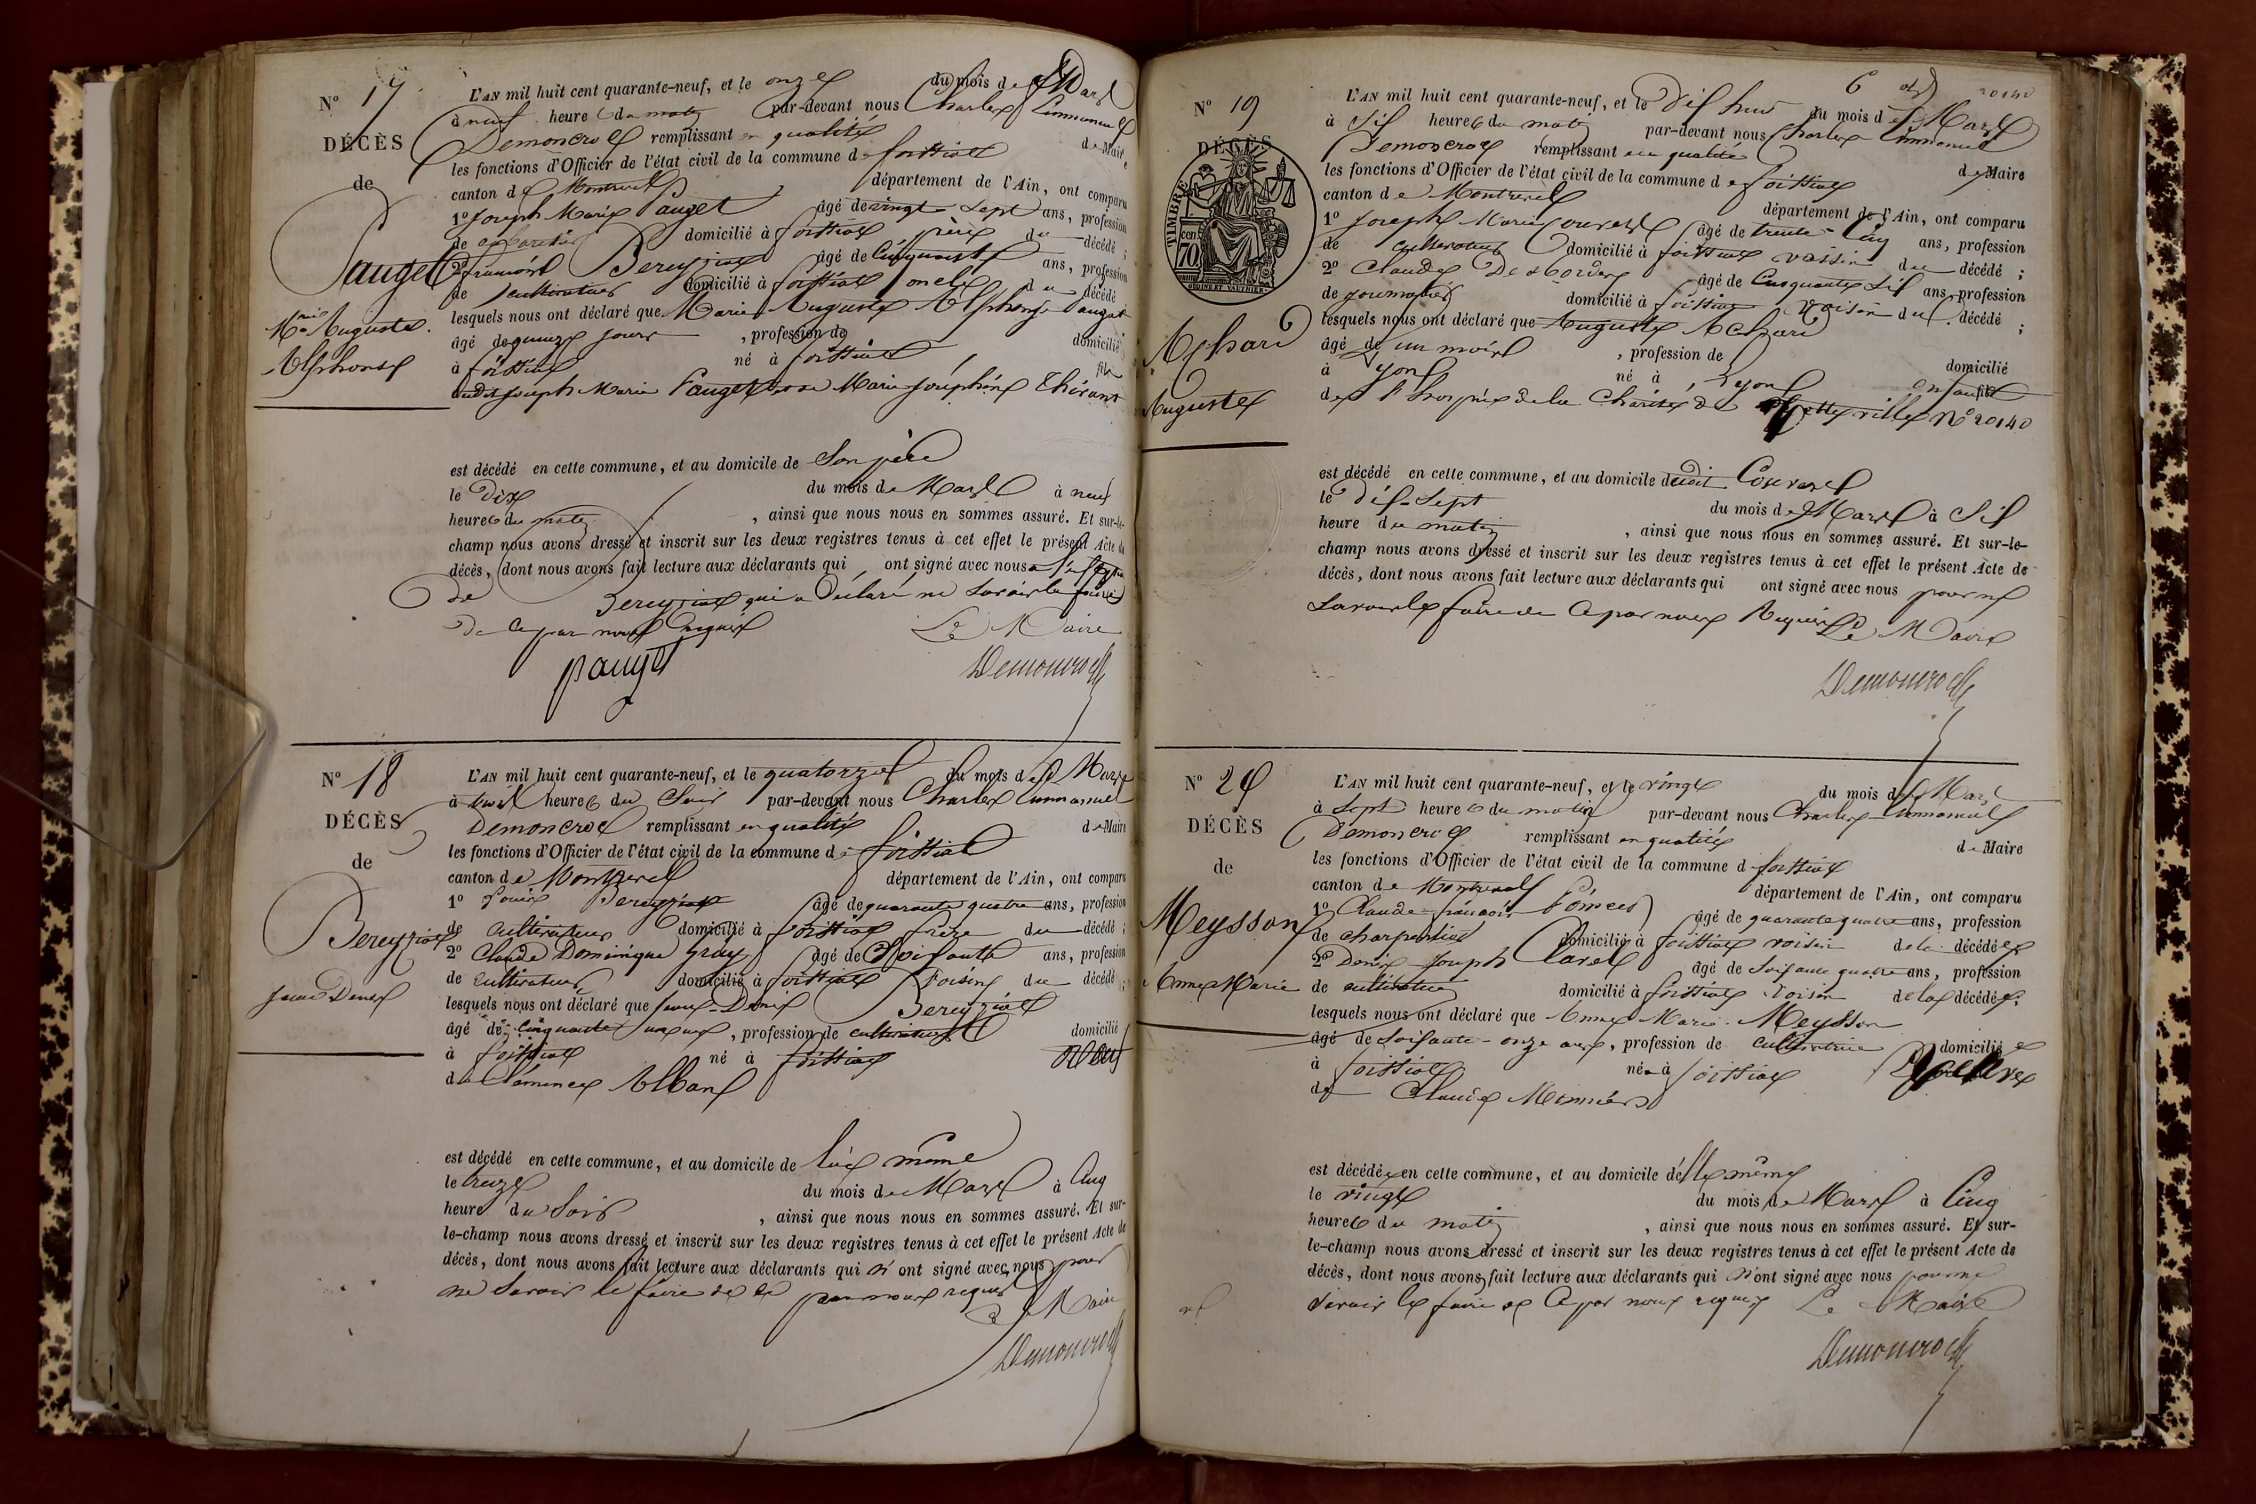 Nº 17
DÉCÈS
de
Pauget
Mrie Auguste
Alphonse
L'AN mil huit cent quarante-neuf, et le onze du mois de Mars
à neuf heures du matin par-devant nous Charles Emmanuel
Demoncroc remplissant en qualité de Maire
les fonctions d'Officier de l'état civil de la commune de foissiat
canton de Montrevel département de l'Ain, ont comparu
1º Joseph Marie Pauget âgé de vingt-sept ans, profession
de domicilié à foissiat père du décédé ;
2º Bereyziat âgé de Cinquante ans, profession
de cultivateur domicilié à foissiat oncle du décédé
lesquels nous ont déclaré que Marie Auguste Alphonse Pauget
âgé de quinze jours , profession de domicilié
à foissiat né à foissiat fils
dudit Joseph Marie Pauget et de Marie Joséphine Thévant
est décédé en cette commune, et au domicile de Son père
le Dix du mois de Mars à neuf
heures du matin , ainsi que nous nous en sommes assuré. Et sur-le-
champ nous avons dressé et inscrit sur les deux registres tenus à cet effet le présent Acte de
décès, dont nous avons fait lecture aux déclarants qui ont signé avec nous
de Bereyziat qui a Déclaré ne Savoir le faire
de Ce par nous requis Le Maire
pauget Demoncroc
Nº 18
DÉCÈS
de
Bereyziat
Jean Denis
L'AN mil huit cent quarante-neuf, et le quatorze du mois de Mars
à trois heures du Soir par-devant nous Charles Emmanuel
Demoncroc remplissant en qualité de Maire
les fonctions d'Officier de l'état civil de la commune de foissiat
canton de Montrevel département de l'Ain, ont comparu
1º Louis Bereyziat âgé de quarante quatre ans, profession
de cultivateur domicilié à foissiat frère du décédé ;
2º Claude Dominique Gray âgé de Soixante ans, profession
de cultivateur domicilié à foissiat Voisin du décédé ;
lesquels nous ont déclaré que Jean-Denis Bereyziat
âgé de Cinquante ans , profession de cultivateur domicilié
à foissiat né à foissiat veuf
de Clémence Alban
est décédé en cette commune, et au domicile de lui même
le treize du mois de Mars à Cinq
heure du Soir , ainsi que nous nous en sommes assuré. Et sur-
le-champ nous avons dressé et inscrit sur les deux registres tenus à cet effet le présent Acte de
décès, dont nous avons fait lecture aux déclarants qui n'ont signé avec nous pour
ne Savoir le faire de ce par nous requis Le Maire
Demoncroc
6
20140
Nº 19
DÉCÈS
TIMBRE
cen
70
Achard
Auguste
L'AN mil huit cent quarante-neuf, et le Dix huit du mois de Mars
à Six heures du matin par-devant nous Charles Emmanuel
Demoncroc remplissant en qualité de Maire
les fonctions d'Officier de l'état civil de la commune de foissiat
canton de Montrevel département de l'Ain, ont comparu
1º Joseph Marie Couvert âgé de trente-Cinq ans, profession
de cultivateur domicilié à foissiat voisin du décédé ;
2º Claude Desbordes âgé de Cinquante Six ans, profession
de journalier domicilié à foissiat Voisin du décédé ;
lesquels nous ont déclaré que Auguste Achard
âgé de un mois , profession de domicilié
à Lyon né à Lyon enfant
de l'hospice de la Charité de cette ville Nº 20140
est décédé en cette commune, et au domicile dudit Couvert
le Dix-Sept du mois de Mars à Six
heure du matin , ainsi que nous nous en sommes assuré. Et sur-le-
champ nous avons dressé et inscrit sur les deux registres tenus à cet effet le présent Acte de
décès, dont nous avons fait lecture aux déclarants qui ont signé avec nous pour ne
Savoir le faire de Ce par nous Requis Le Maire
Demoncroc
Nº 20
DÉCÈS
de
Meysson
Anne Marie
L'AN mil huit cent quarante-neuf, et le vingt du mois de Mars
à Sept heures du matin par-devant nous Charles Emmanuel
Demoncroc remplissant en qualité de Maire
les fonctions d'Officier de l'état civil de la commune de foissiat
canton de Montrevel département de l'Ain, ont comparu
1º Claude-françois âgé de quarante quatre ans, profession
de charpentier domicilié à foissiat voisin de la décédée
2º Denis Joseph Clarel âgé de Soixante quatre ans, profession
de cultivateur domicilié à foissiat voisin de la décédée ;
lesquels nous ont déclaré que Anne Marie Meysson
âgé de Soixante-onze ans, profession de cultivatrice domiciliée
à foissiat née à foissiat veuve
de Claude Monnier
est décédée en cette commune, et au domicile d'elle même
le vingt du mois de Mars à Cinq
heures du matin , ainsi que nous nous en sommes assuré. Et sur-
le-champ nous avons dressé et inscrit sur les deux registres tenus à cet effet le présent Acte de
décès, dont nous avons fait lecture aux déclarants qui n'ont signé avec nous pour ne
Savoir le faire de Ce par nous requis Le Maire
Demoncroc